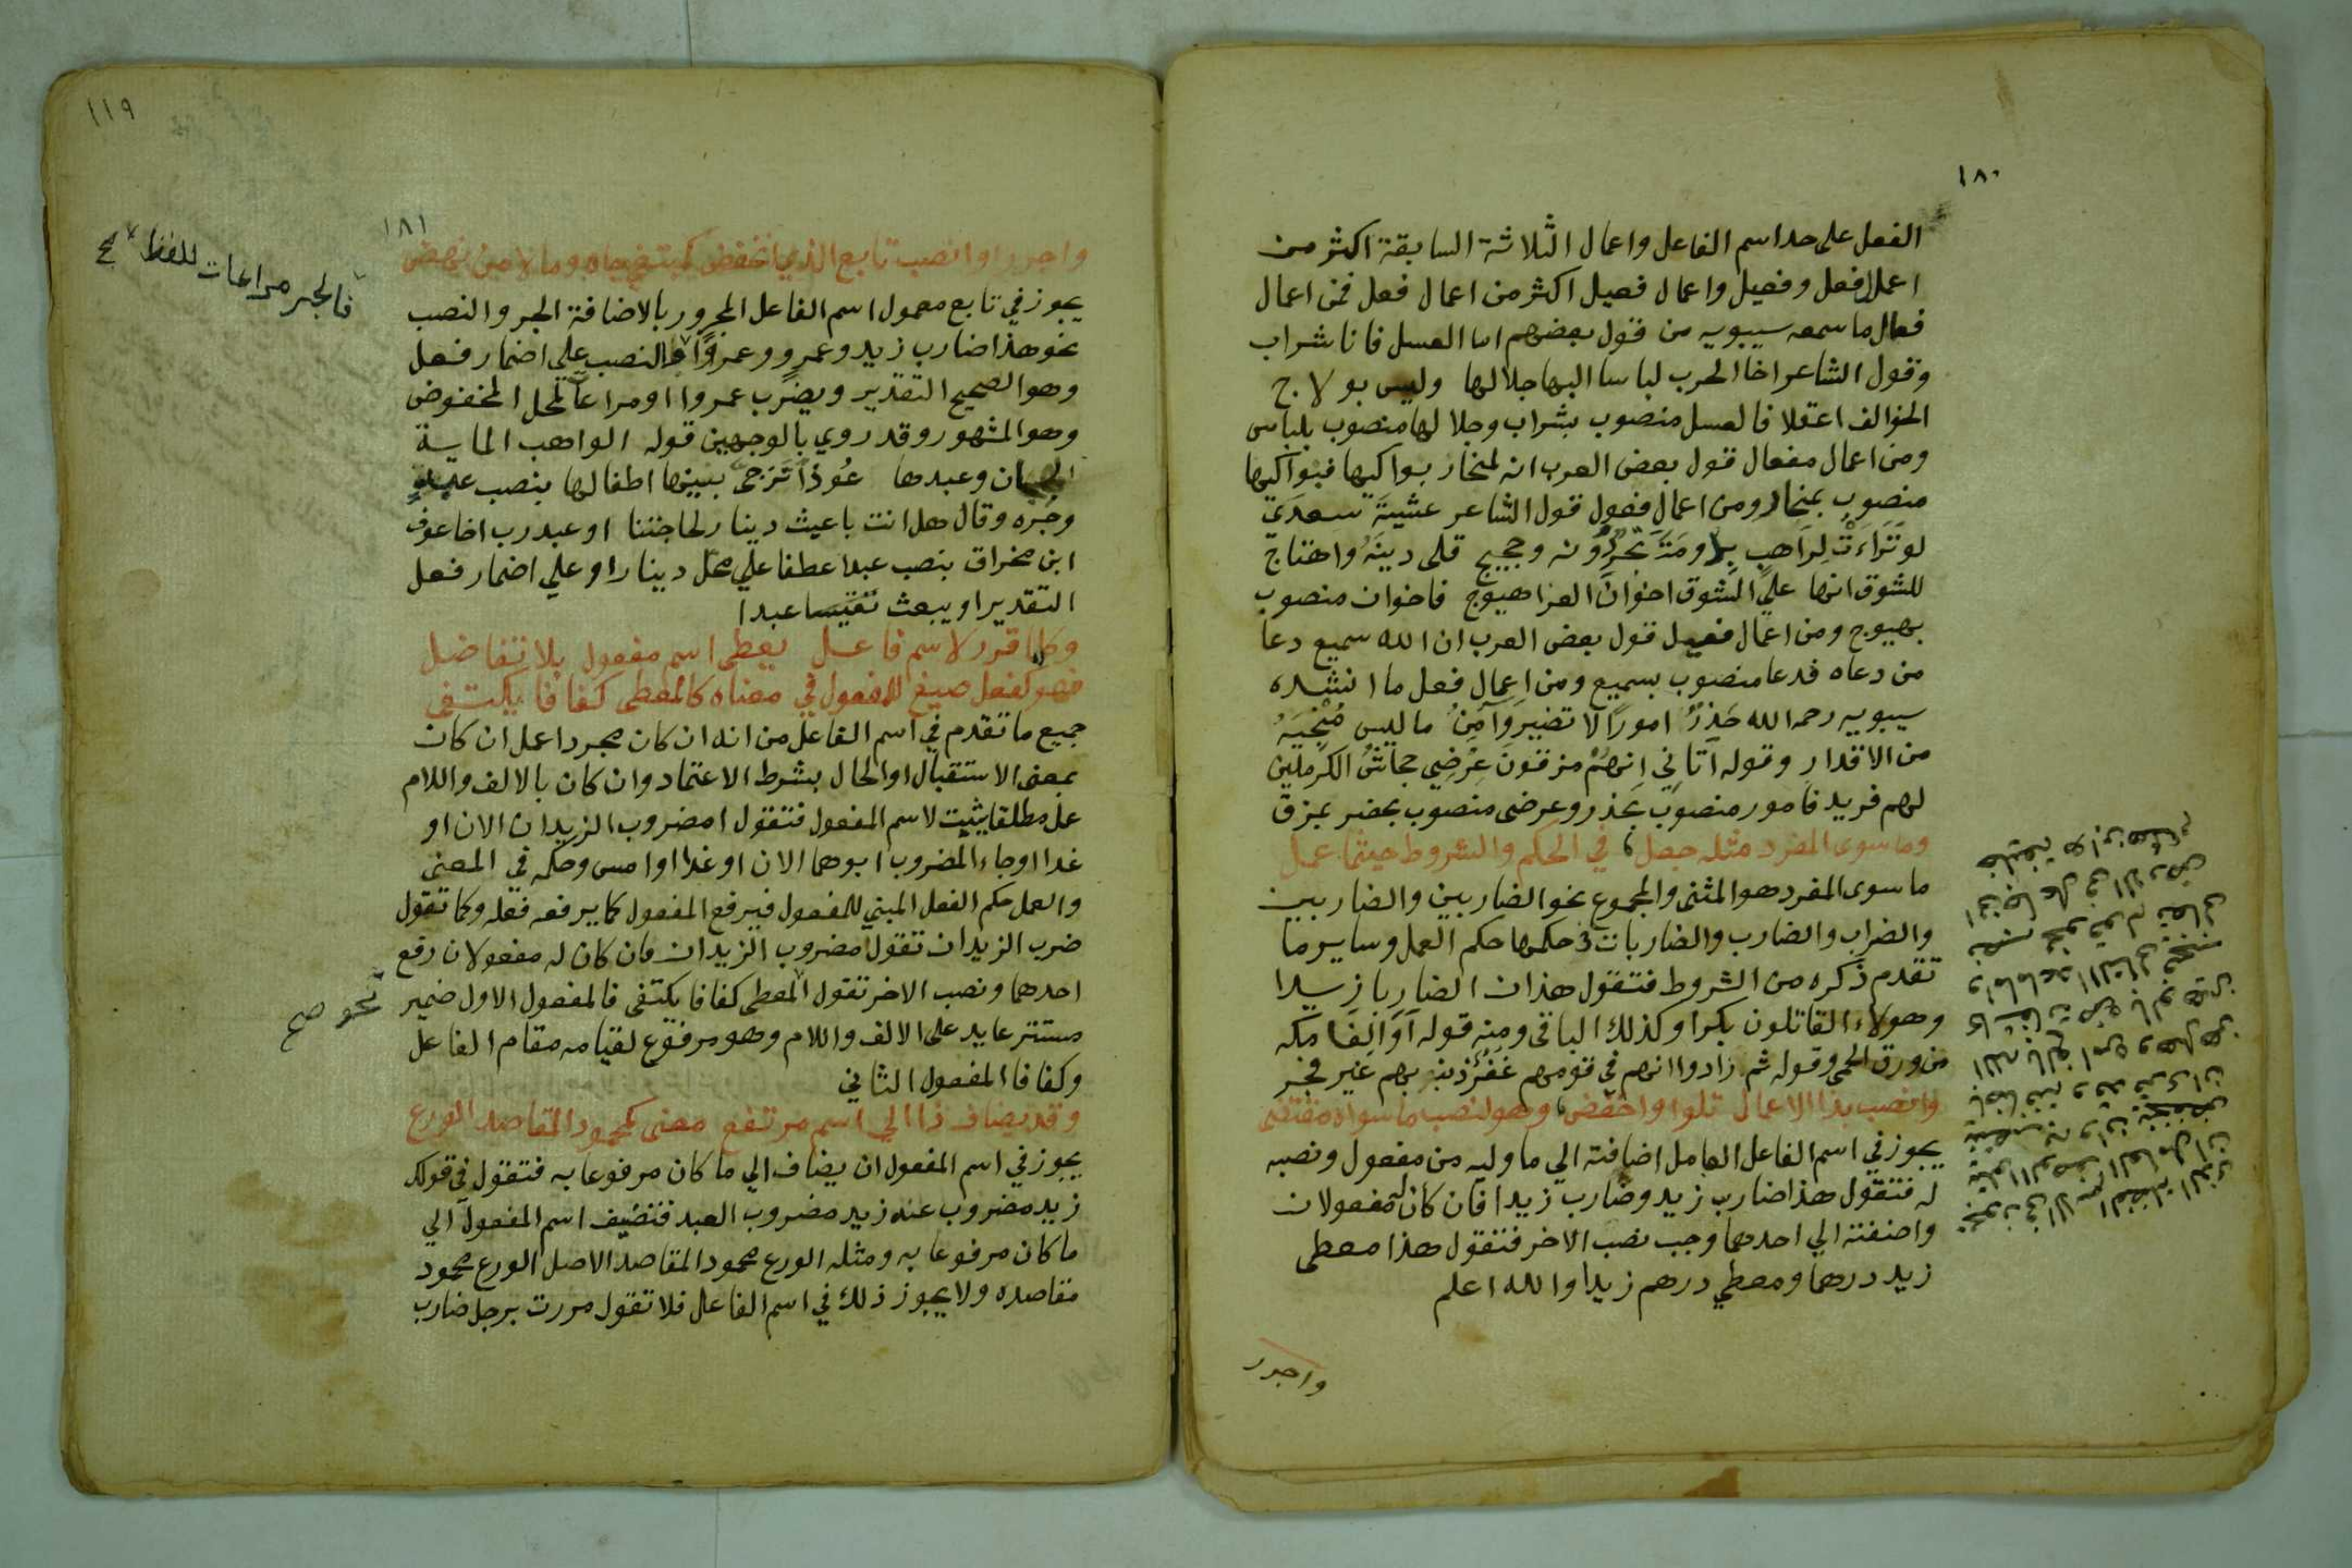 ١٨٠
الفعل على حد اسم الفاعل واعمال الثلاثة السابقة اكثر من
اعمال فعل وفعيل واعمال فعيل اكثر من اعمال فعل فمن اعمال
فعال ما سمعه سيبويه من قول بعضهم اما العسل فانا شراب
وقول الشاعر اخا الحرب لباسا اليها جلالها وليس بولاج
الخوالف اعقلا فالعسل منصوب بشراب وجلالها منصوب بلباس
ومن اعمال مفعال قول بعض العرب انه لمنحار بواكيها فبواكيها
منصوب بمنحار ومن اعمال فعول قول الشاعر عشيةَ سعدَي
لو تَرَاءَتْ لِرَاهبٍ بِدومَة تجرٌ دُونه وحجيج قلى دينَهُ واهتاج
للشوق انها علي الشوق اخوانَ العزا هيوج فاخوان منصوب
بهيوج ومن اعمال فعيل قول بعض العرب ان الله سميع دعا
من دعاه فدعا منصوب بسميع ومن اعمال فعل ما انشده
سيبويه رحمه الله حَذِرٌ امورًا لا تضير وآمِنٌ ما ليس مُنْجِيَهُ
من الاقدارِ وقوله اَتَانِي اِنهُمْ مزقونَ عِرْضِي جحاشُ الكرملين
لهم فريد فامور منصوب بحذر وعرضى منصوب بمزق
وما سوى المفرد مثله جعل، في الحكم والشروط حيثما عمل
ما سوى المفرد هو المثنى والمجموع نحو الضاربين والضاربين
والضراب والضارب والضاربات فحكمها حكم العمل وساير ما
تقدم ذكره من الشروط فتقول هذان الضاربا زيدا
وهولاء القاتلون بكرا وكذلك الباقى ومنه قوله اَوَالِفًا مكه
من ورق الحمى وقوله ثم زادوا انهم في قومهم غفرٌ ذنبهم غير فجر
وانصب بذا الاعمال تلوا واخفض، وهو لنصب ما سواه مقتضى
يجوز في اسم الفاعل العامل اضافته الي ما وليه من مفعول ونصبه
له فتقول هذا ضارب زيد وضارب زيدا فان كان له مفعولان
واضفته الي احدهما وجب نصب الاخر فتقول هذا معطى
زيد درهما ومعطي درهم زيدا والله اعلم
واجرر
١١٩
١٨١
واجرر او انصب تابع الذي انخفض كمبتغي جاه ومالا من نهض
يجوز في تابع معمول اسم الفاعل المجرور بالاضافة الجر والنصب
نحو هذا ضارب زيد وعمرٍو وعمرًوا والنصب علي اضمار فعل
وهو الصحيح التقدير ويضرب عمروا او مراعاة لمحل المخفوض
وهو المشهور وقد روي بالوجهين قوله الواهب الماية
الهجان وعبدها عُوذًا تزجى بينها اطفالها بنصب عبد
وجره وقال هل انت باعث دينار لحاجتنا او عبد رب اخا عوف
ابن مخراق بنصب عبد عطفا علي محل دينار او علي اضمار فعل
التقدير او يبعث عبدا
فالجر مراعات للفظ صح
وكلما قرر لاسم فاعل يعطى اسم مفعول بلا تفاضل
فهو كفعل صيغ للمفعول في معناه كالمعطى كفافا يكتفى
جميع ما تقدم في اسم الفاعل من انه ان كان مجردا عمل ان كان
بمعنى الاستقبال او الحال بشرط الاعتماد وان كان بالالف واللام
عمل مطلقا يثبت لاسم المفعول فتقول امضروب الزيدان الان او
غدا او جاء المضروب ابوهما الان او غدا او امس وحكمه في المعنى
والعمل حكم الفعل المبني للمفعول فيرفع المفعول كما يرفعه فعله وكما تقول
ضرب الزيدان تقول امضروب الزيدان فان كان له مفعولان رفع
احدهما ونصب الاخر تقول المعطى كفافا يكتفى فالمفعول الاول ضمير
نحو صح
مستتر عايد على الالف واللام وهو مرفوع لقيامه مقام الفاعل
وكفافا المفعول الثاني
وقد يضاف ذا الي اسم مرتفع معنى كمحمود المقاصد الورع
يجوز في اسم المفعول ان يضاف الي ما كان مرفوعا به فتقول في قولك
زيد مضروب عبده زيد مضروب العبد فتضيف اسم المفعول الي
ما كان مرفوعا به ومثله الورع محمود المقاصد الاصل الورع محمود
مقاصده ولا يجوز ذلك في اسم الفاعل فلا تقول مررت برجل ضارب